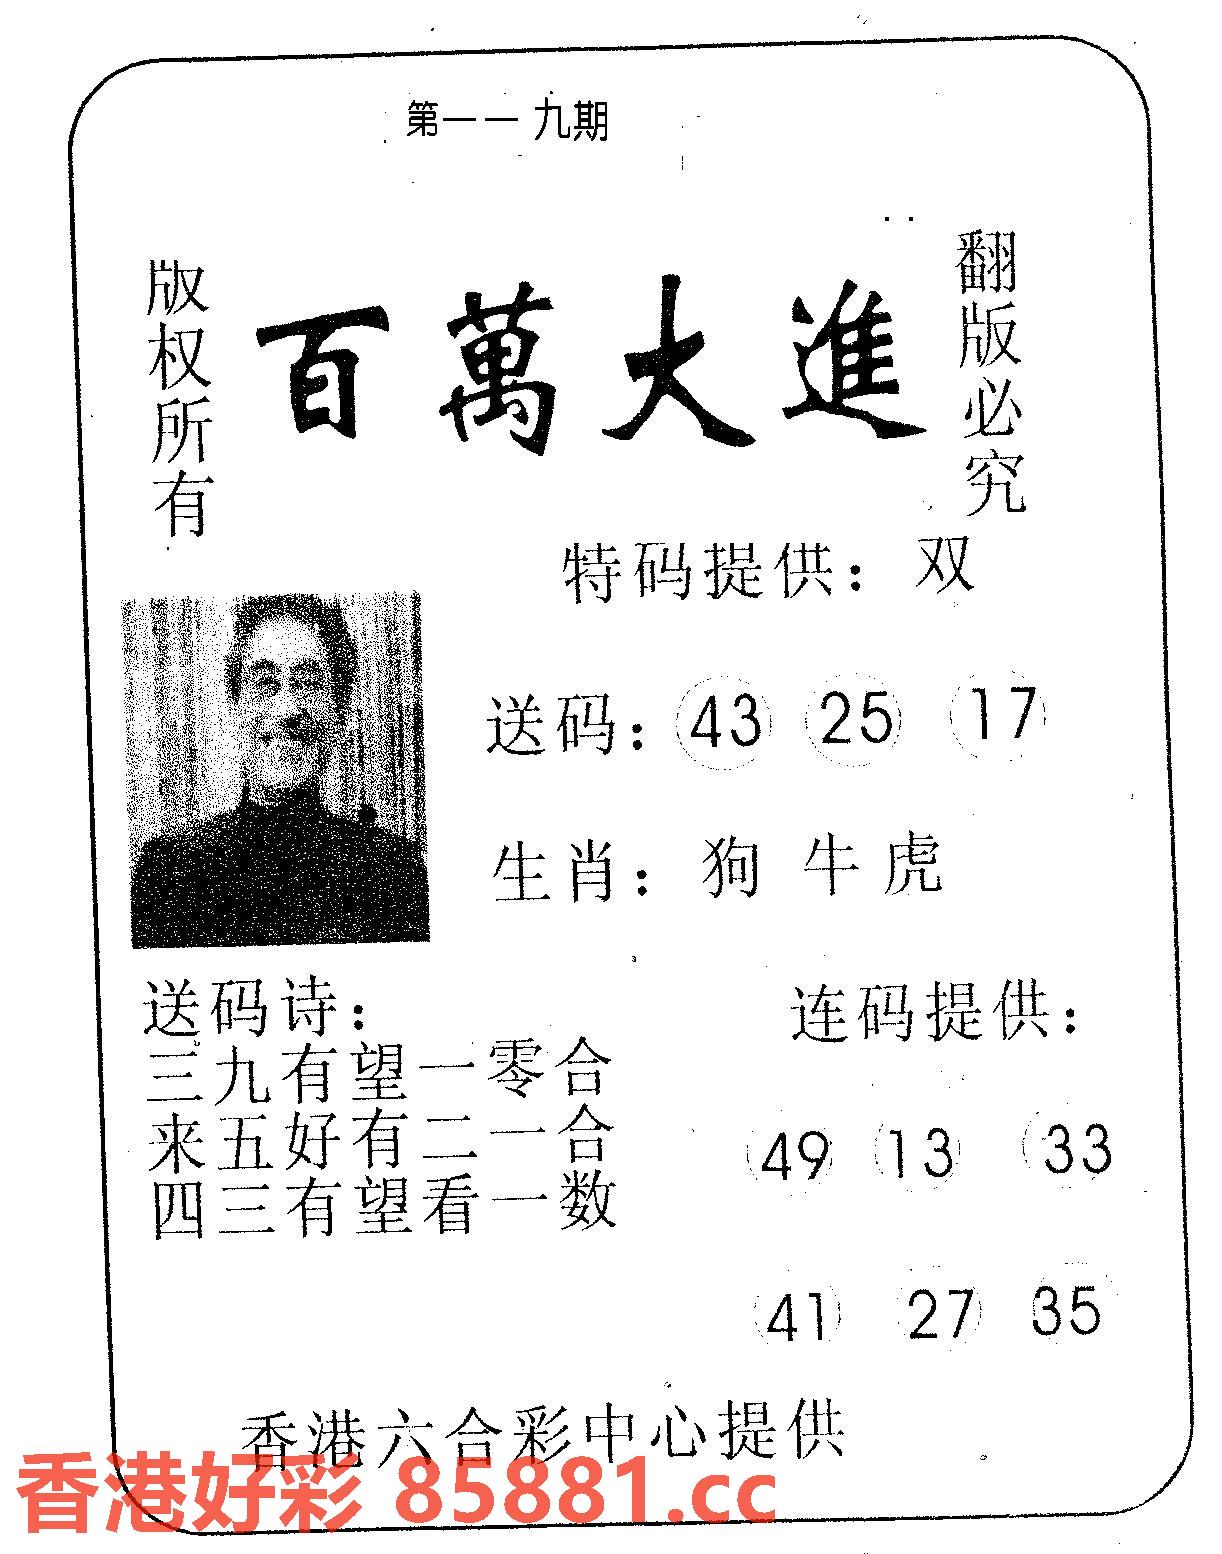 第一一九期
版权所有
百萬大進
翻版必究
特码提供：双
送码：43 25 17
生肖：狗牛虎
送码诗：
三九有望一零合
来五好有二一合
四三有望看一数
连码提供：
49 13 33
41 27 35
香港六合彩中心提供
香港好彩 85881.cc